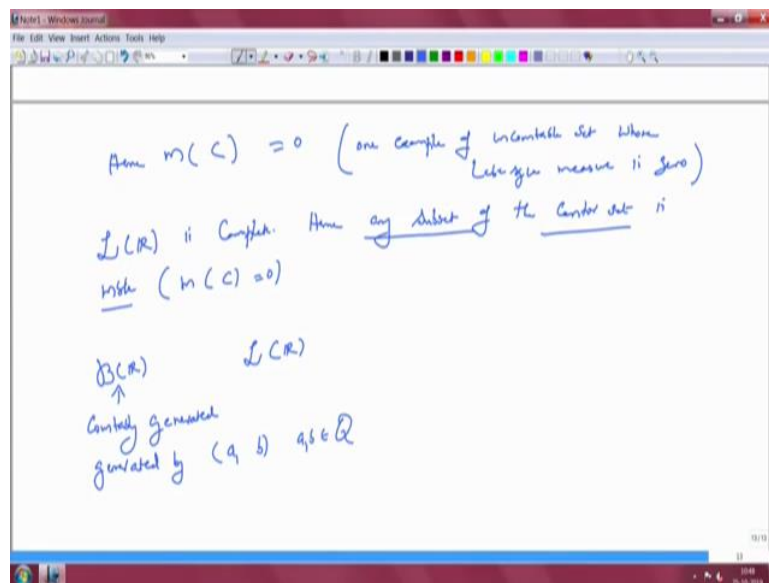 Note1 - Windows Journal
File Edit View Insert Actions Tools Help
Hence m(C) = 0 (one example of uncountable set whose
Lebesgue measure is zero)
ℒ(ℝ) is Complete. Hence any subset of the Cantor set is
mble (m(C) = 0)
ℬ(ℝ) ℒ(ℝ)
↑
Countably generated
generated by (a, b) a,b ∈ ℚ
13/13
13
10:48